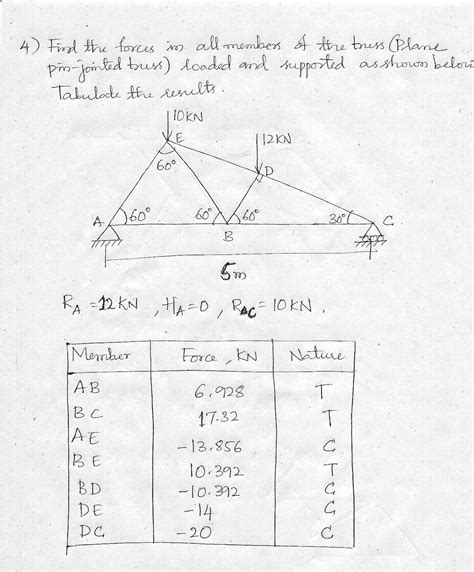 4) Find the forces in all members of the truss (Plane
pin-jointed truss) loaded and supported as shown below
Tabulate the results.
10KN
E
12KN
60°
D
A
60°
60°
60°
30°
C
B
5m
RA = 12KN , HA = 0 , RAC = 10KN.
Member Force, KN Nature
AB 6.928 T
BC 17.32 T
AE -13.856 C
BE 10.392 T
BD -10.392 C
DE -14 C
DC -20 C